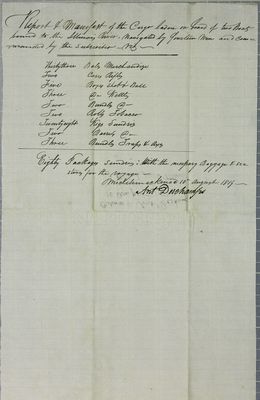 Report & Manifest of the Cargo laden on board of two Boats
bound to the Illinois River, Navigated by Men and Com-
manded by the Subscriber Viz
Thirty three Bales Merchandize
Two Cases
Five Boxes Shot & Ball
Three Do Kettles
Two Bundles Do
Two Rolls Tobacco
Twenty eight Kegs Sundries
Two Barrels Do
Three Bundles Traps & Axes
Eighty Packages Sundries with the necessary Baggage &
Stores for the voyage
Michilimackinac 10th August 1819
Ant Deschamps